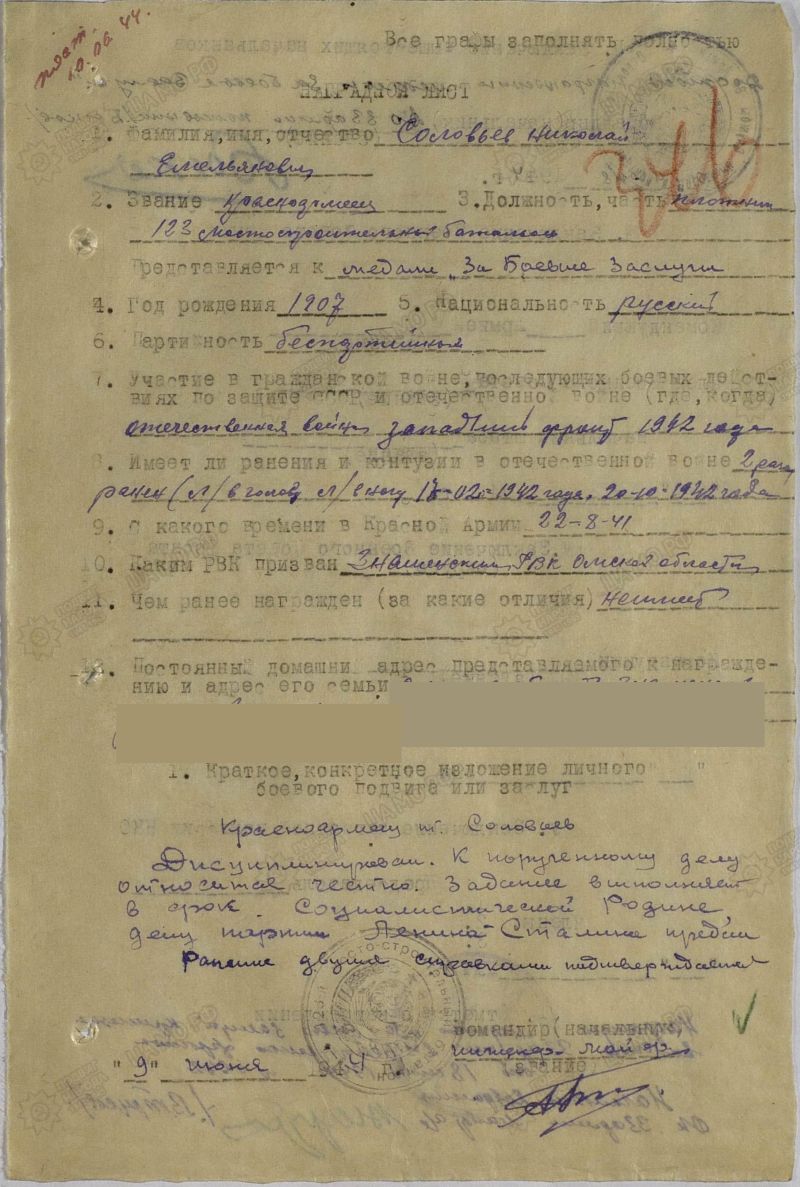 10.06.44.
Все графы заполнять полностью
НАГРАДНОЙ ЛИСТ
1. Фамилия,имя,отчество Соловьев Николай
Емельянович
2. Звание Красноармеец 3.Должность,часть плотник
123 мостостроительный батальон
Представляется к медали „За Боевые Заслуги
4. Год рождения 1907 5. Национальность русский
6. Партийность беспартийный
7. Участие в гражданской войне,последующих боевых дейст-
виях по защите СССР и отечественной войне (где,когда)
отечественная война западный фронт 1942 года
8. Имеет ли ранения и контузии в отечественной войне 2 раза
ранен (л/ в голову л/ в ногу -02-1942 года, 20-10-1942 года
9. С какого времени в Красной Армии 22-8-41
10. Каким РВК призван Знаменским РВК Омской области
11. Чем ранее награжден (за какие отличия) не имеет
12. Постоянный домашний адрес представляемого к награжде-
нию и адрес его семьи
1. Краткое,конкретное изложение личного
боевого подвига или заслуг
Красноармеец т. Соловьев
Дисциплинирован. К порученному делу
относится честно. Задание выполняет
в срок. Социалистической Родине
делу партии Ленина-Сталина предан
Ранение двумя справками подтверждается
Командир(начальник)
инженер-майор
"9" июня 1944 г. звание